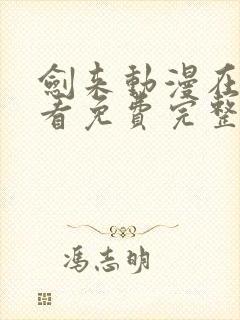 劍来動漫在
看免費完整
馮志明